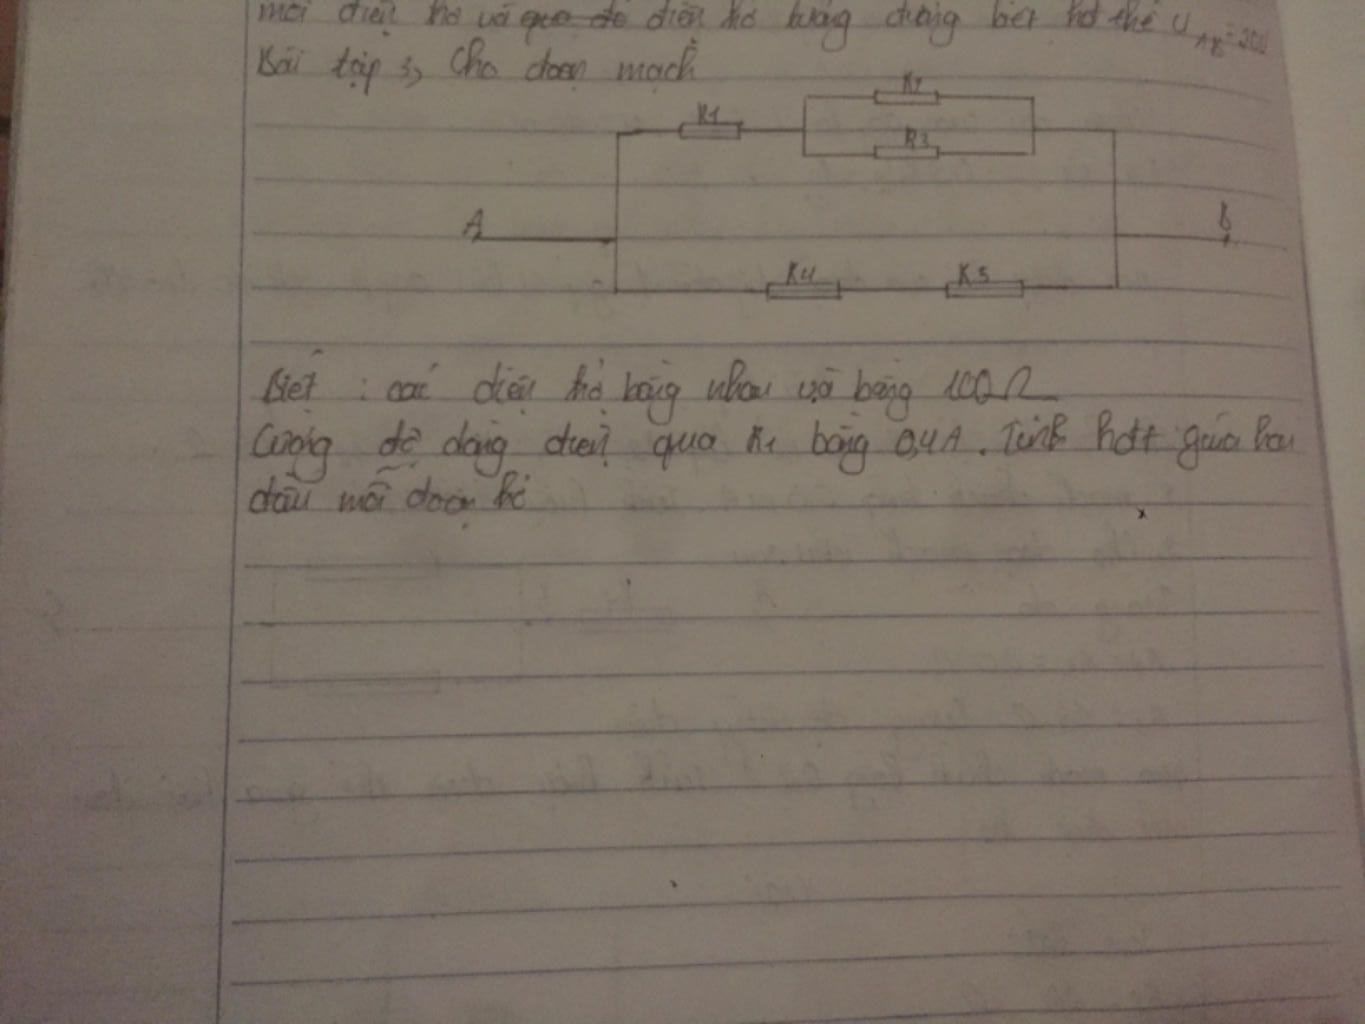 mỗi điện trở và qua đó điện trở tương đương biết hđ thế U AB = 20V
Bài tập 3, Cho đoạn mạch
R2
R1
R3
A
B
R4 R5
Biết : các điện trở bằng nhau và bằng 100Ω
Cường độ dòng điện qua R1 bằng 0,4A. Tính hđt giữa hai
đầu mỗi đoạn trở